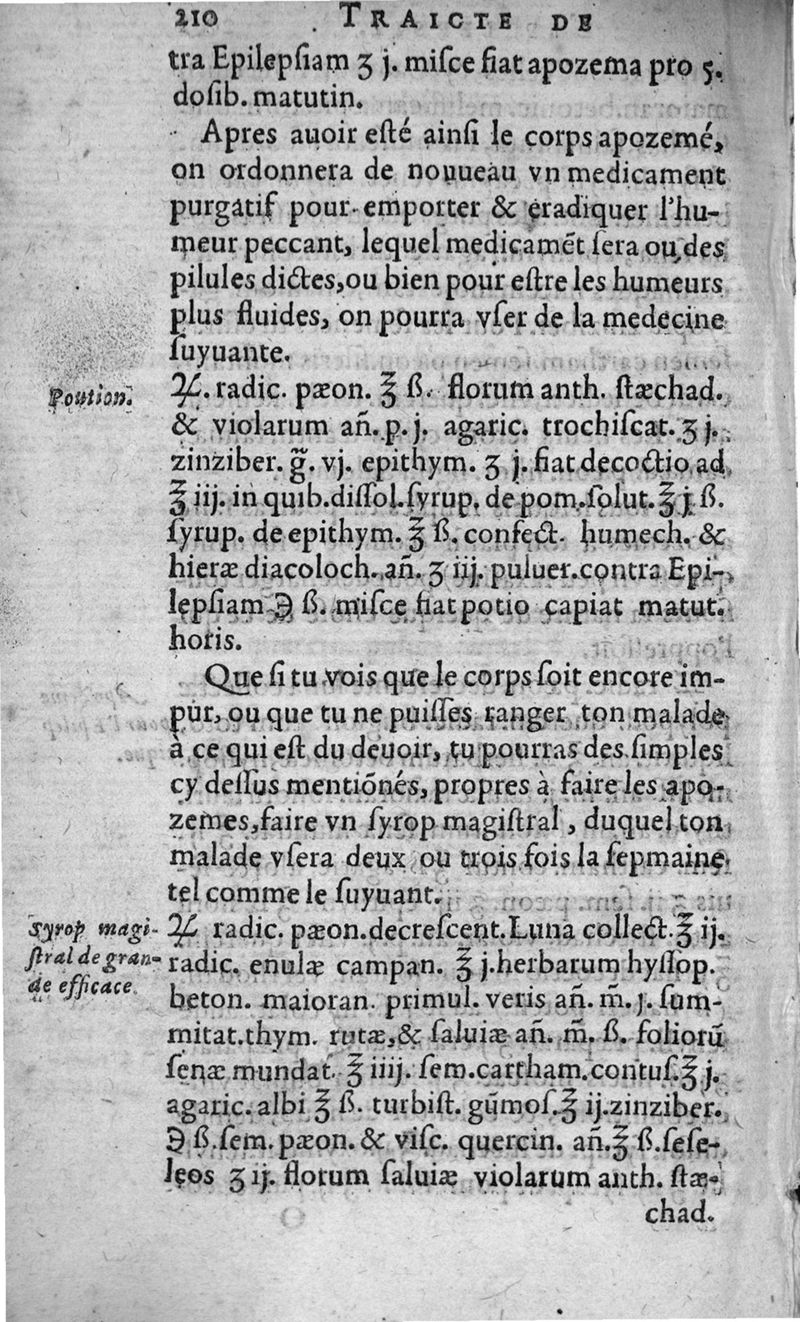 210 TRAICTE DE
tra Epilepſiam ʒ j. miſce fiat apozema pro 5.
doſib. matutin.
Apres auoir eſté ainſi le corps apozemé,
on ordonnera de nouueau vn medicament
purgatif pour emporter & eradiquer l'hu-
meur peccant, lequel medicamẽt ſera ou des
pilules dictes, ou bien pour eſtre les humeurs
plus fluides, on pourra vſer de la medecine
ſuyuante.
Poution.
♃. radic. pæon. ℥ ß. florum anth. ſtæchad.
& violarum añ. p. j. agaric. trochiſcat. ʒ j.
zinziber. g̃. vj. epithym. ʒ j. fiat decoctio ad
℥ iij. in quib. diſſol. ſyrup. de pom. ſolut. ℥ j ß.
ſyrup. de epithym. ℥ ß. confect. humech. &
hieræ diacoloch. añ. ʒ iij. puluer. contra Epi-
lepſiam ℈ ß. miſce fiat potio capiat matut.
horis.
Que ſi tu vois que le corps ſoit encore im-
pur, ou que tu ne puiſſes ranger ton malade
à ce qui eſt du deuoir, tu pourras des ſimples
cy deſſus mentiõnés, propres à faire les apo-
zemes, faire vn ſyrop magiſtral, duquel ton
malade vſera deux ou trois fois la ſepmaine
tel comme le ſuyuant.
Syrop magi-
ſtral de gran-
de efficace.
♃ radic. pæon. decreſcent. Luna collect. ℥ ij.
radic. enulæ campan. ℥ j. herbarum hyſſop.
beton. maioran. primul. veris añ. m̃. j. ſum-
mitat. thym. rutæ, & ſaluiæ añ. m̃. ß. foliorũ
ſenæ mundat. ℥ iiij. ſem. cartham. contuſ. ℥ j.
agaric. albi ℥ ß. turbiſt. gũmoſ. ℥ ij. zinziber.
℈ ß. ſem. pæon. & viſc. quercin. añ. ℥ ß. ſeſe-
leos ʒ ij. florum ſaluiæ violarum anth. ſtæ-
chad.